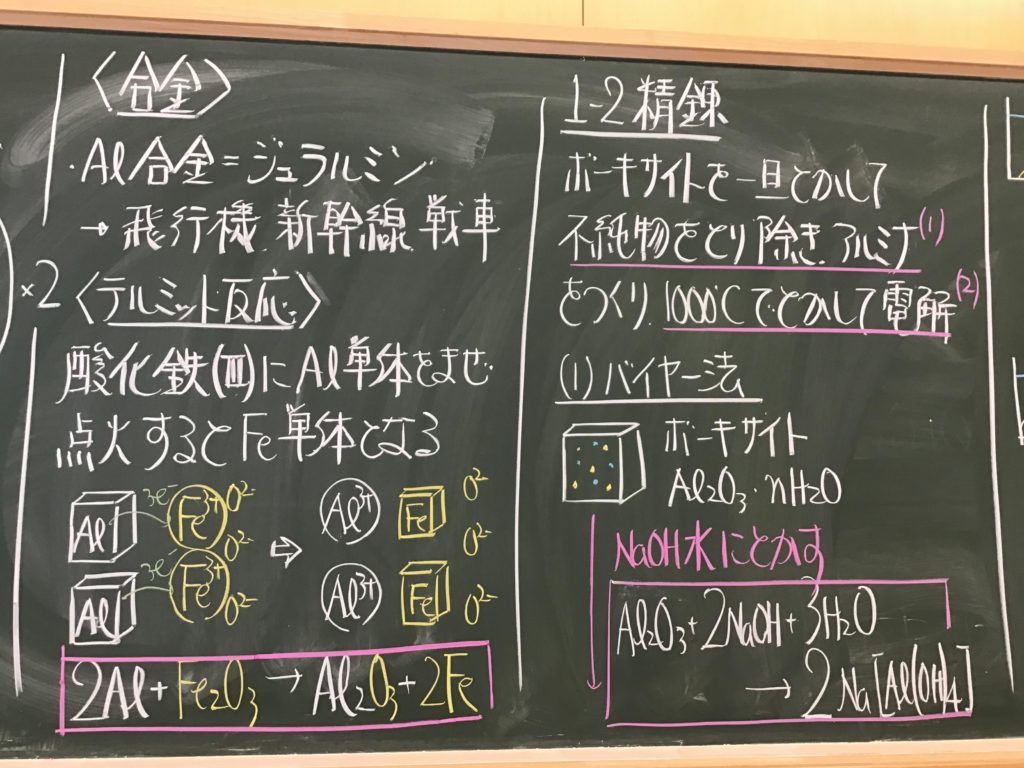 ×2
〈合金〉
・Al合金=ジュラルミン
→ 飛行機 新幹線 戦車
〈テルミット反応〉
酸化鉄(Ⅲ)にAl単体をまぜ
点火するとFe単体となる
Al 3e⁻ Fe³⁺ O²⁻ O²⁻ ⇨ Al³⁺ Fe O²⁻ O²⁻
Al 3e⁻ Fe³⁺ O²⁻ Al³⁺ Fe O²⁻
2Al + Fe₂O₃ → Al₂O₃ + 2Fe
1-2 精錬
ボーキサイトを一旦とかして
不純物をとり除き アルミナ(1)
をつくり 1000℃でとかして電解(2)
(1) バイヤー法
ボーキサイト
Al₂O₃・nH₂O
NaOH水にとかす
Al₂O₃ + 2NaOH + 3H₂O
→ 2Na[Al(OH)₄]